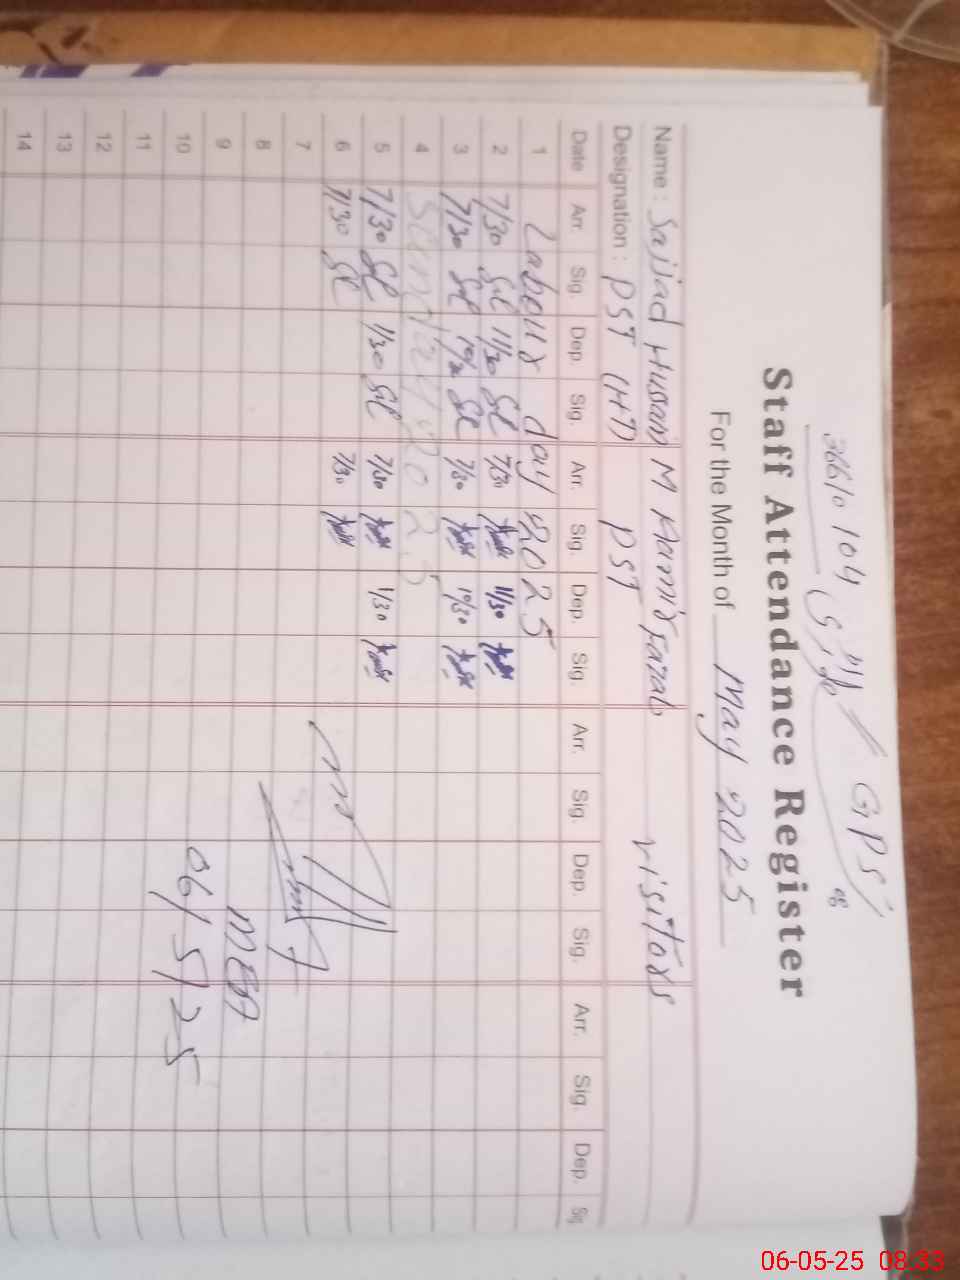 36610104 GPS
Staff Attendance Register
For the Month of May 2025
Name : Sajjad Hussain M Aamir visitors
Designation : PST (HT) PST
Date Arr. Sig. Dep. Sig. Arr. Sig. Dep. Sig. Arr. Sig. Dep. Sig. Arr. Sig. Dep. Sig.
1 Labour day 2025
2 7/30 11/30 7/30 11/30
3 7/30 7/30 10/30
4 Sunday
5 7/30 1/30 7/30 1/30
6 7/30 7/30
7
8
9 MEA
10 06/5/25
11
12
13
14
06-05-25 08:33